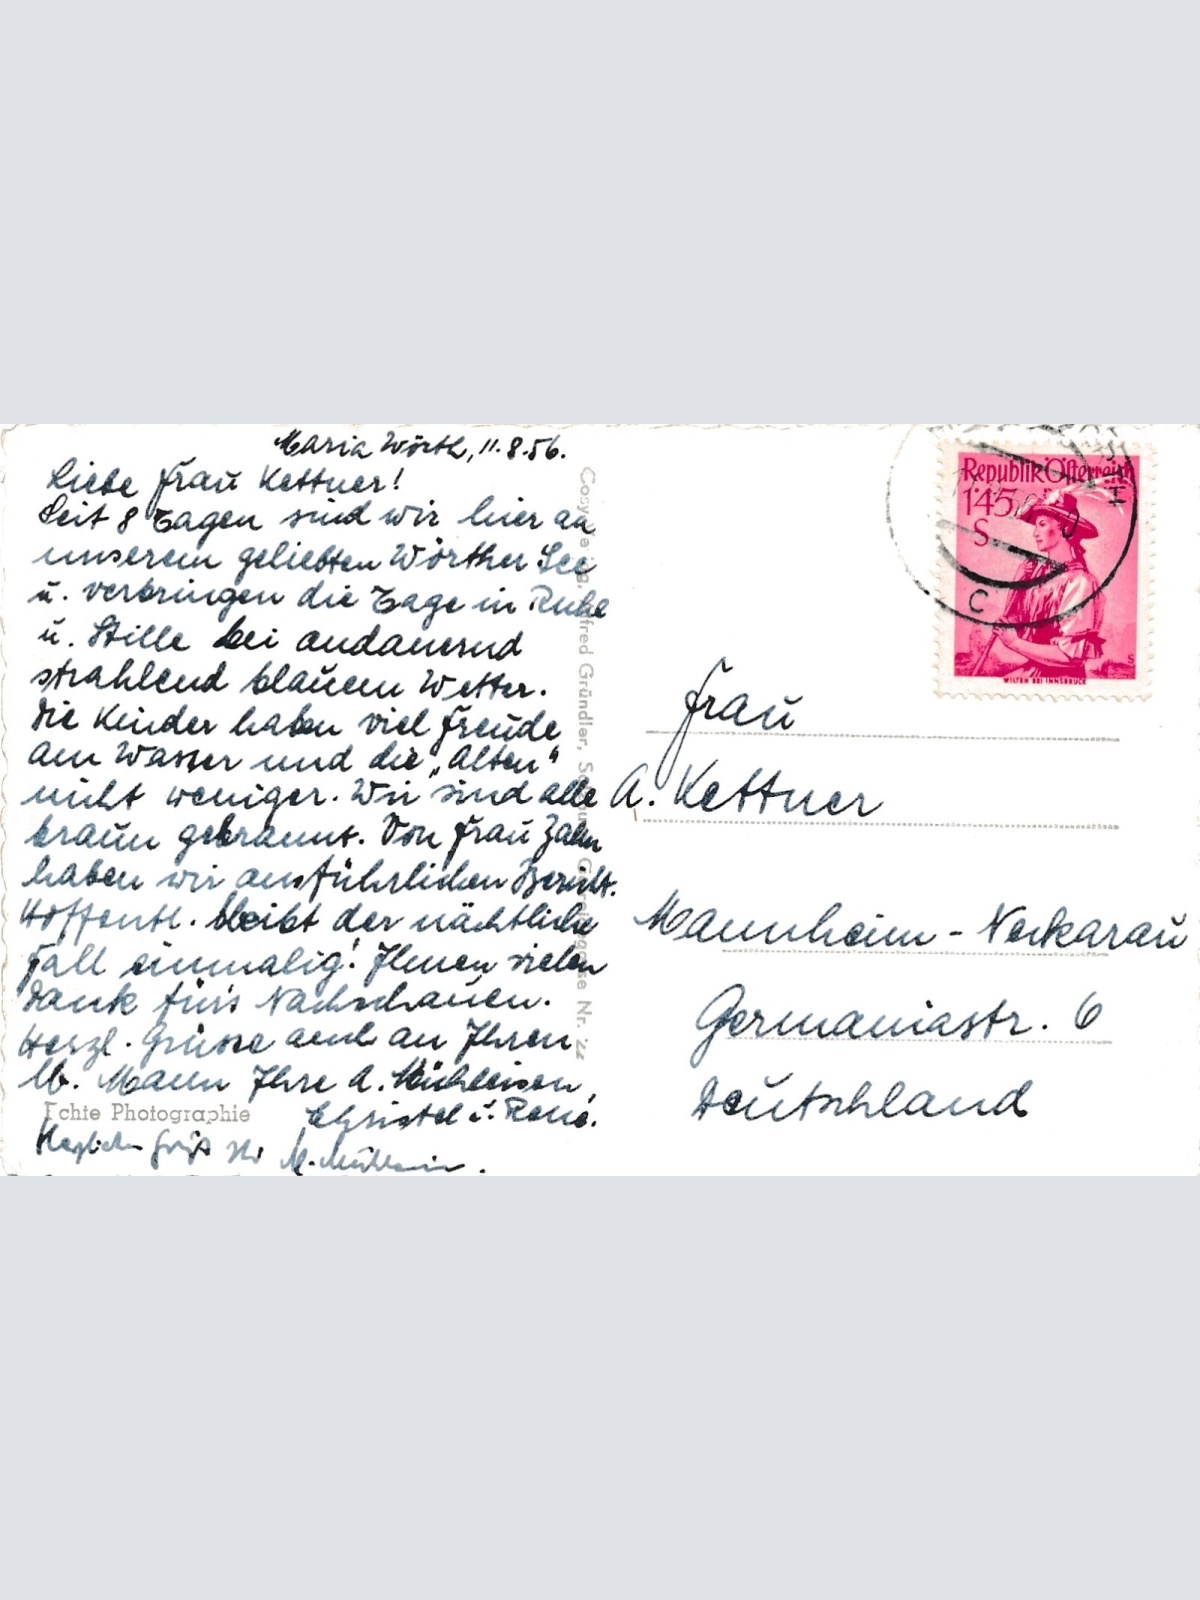 Maria Wörth, 11.8.56.
Liebe Frau Kettner!
Seit 8 Tagen sind wir hier an
unserem geliebten Wörther See
u. verbringen die Tage in Ruhe
u. Stille bei andauernd
strahlend blauem Wetter.
Die Kinder haben viel Freude
am Wasser und die „Alten"
nicht weniger. Wir sind alle
braun gebrannt. Von Frau Zahn
haben wir ausführlichen Bericht.
Hoffentl. bleibt der nächtliche
Fall einmalig! Ihnen vielen
Dank für's Nachschauen.
Herzl. Grüsse auch an Ihren
lb. Mann Ihre A. Mühleisen,
Christel u. René.
Echte Photographie
Herzlichen Gruß Ihr M. Mühleisen.
Manfred Gründler,
Nr. 22
Republik Österreich
1'45
S
WILTEN BEI INNSBRUCK
C
Frau
A. Kettner
Mannheim - Neckarau
Germaniastr. 6
Deutschland